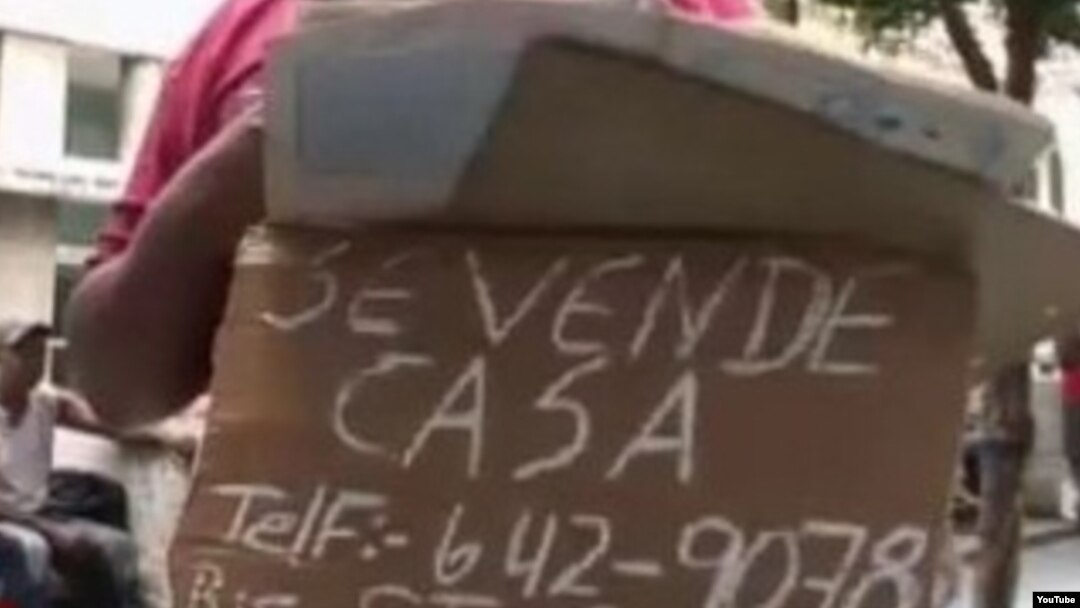 SE VENDE
CASA
TelF:- 642-9078
YouTube